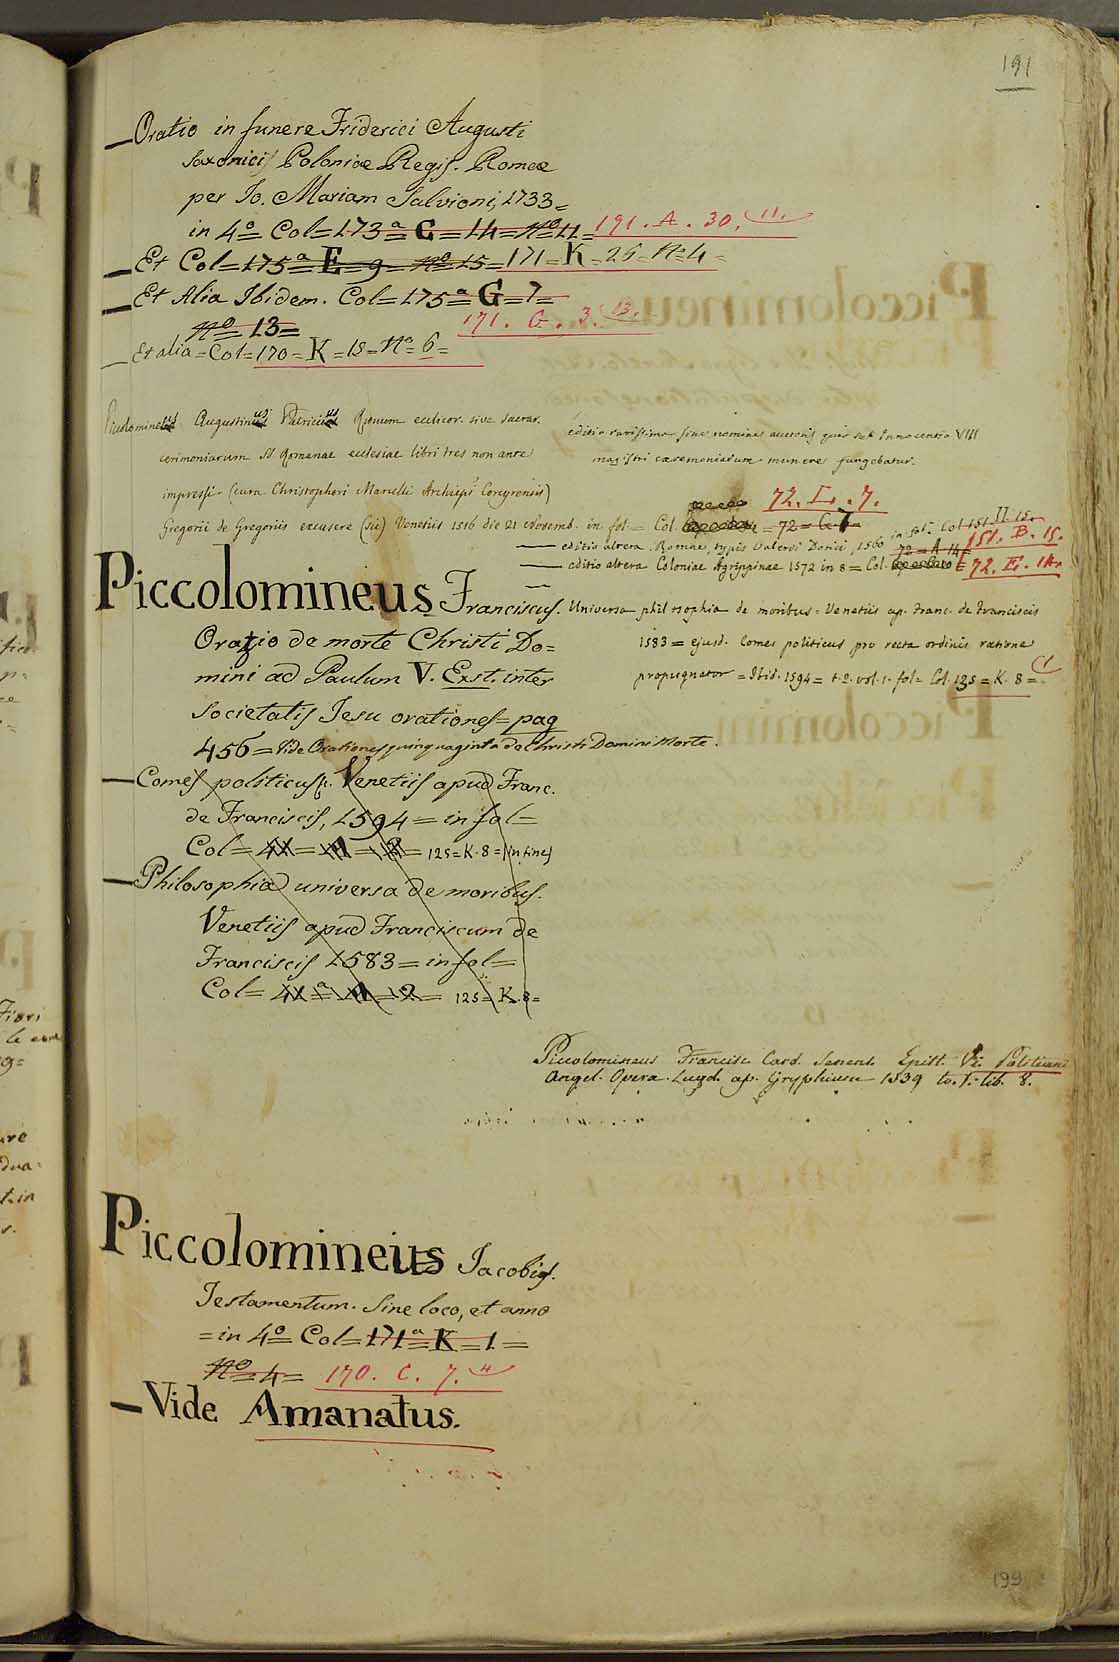 191
— Oratio in funere Friderici Augusti
Saxonicis Poloniæ Regis. Romæ
per Io. Mariam Salvioni, 1733=
in 4º= Col= 173ª= C= 14= Nº 11= 191. A. 30. 11.
— Et Col= 175ª= E= 9= Nº 15= 171= K= 26= N= 4=
— Et Alia Ibidem. Col= 175ª= G= 7=
Nº= 13= 171. G. 3. 13.
— Et alia= Col= 170= K= 18= Nº 6=
Piccolomineus Augustinus Patricius
cerimoniarum SS Romanae ecclesiae libri tres non ante
impressi. (cura Christophori Marcelli Archiepi Corcyrensis)
Gregorii de Gregoriis excusere (sic) Venetiis 1516 die 21 Novemb. in fol= Col. = 72= G 7
editio rarissima sine nomine auctoris qui sub Innocentio VIII
magistri cæremoniarum munere fungebatur.
72. L. 7.
— editio altera. Romae, typis Valerii Dorici, 1560 in fol. Col 151 II. 15.
72= A. 14= 151. B. 15.
— editio altera Coloniae Agrippinae 1572 in 8= Col. 72. E. 14.
Piccolomineus Franciscus.
Oratio de morte Christi Do=
mini ad Paulum V. Exst. inter
Societatis Iesu orationes= pag
456= Vide Orationes quinquaginta de Christi Domini Morte.
— Universa philosophia de moribus= Venetiis ap. Franc. de Franciscis
1583= ejusd. Comes politicus pro recta ordinis ratione
propugnator= Ibid. 1594= t. 2. vol. 1. fol= Col. 135= K. 8=
— Comes politicus. Venetiis apud Franc.
de Franciscis, 1594= in fol=
Col= 125= K. 8= (in fine)
— Philosophia universa de moribus.
Venetiis apud Franciscum de
Franciscis 1583= in fol=
Col= 125= K. 8=
Piccolomineus Francisc. Card. Senens. Epist. Vi. Politiani
Angel. Opera. Lugd. ap. Gryphium 1539 to. 1. lib. 8.
Piccolomineus Iacobus.
Testamentum. Sine loco, et anno
= in 4º= Col= 171ª= K= 1=
Nº= 4= 170. C. 7. 4
— Vide Amanatus.
199